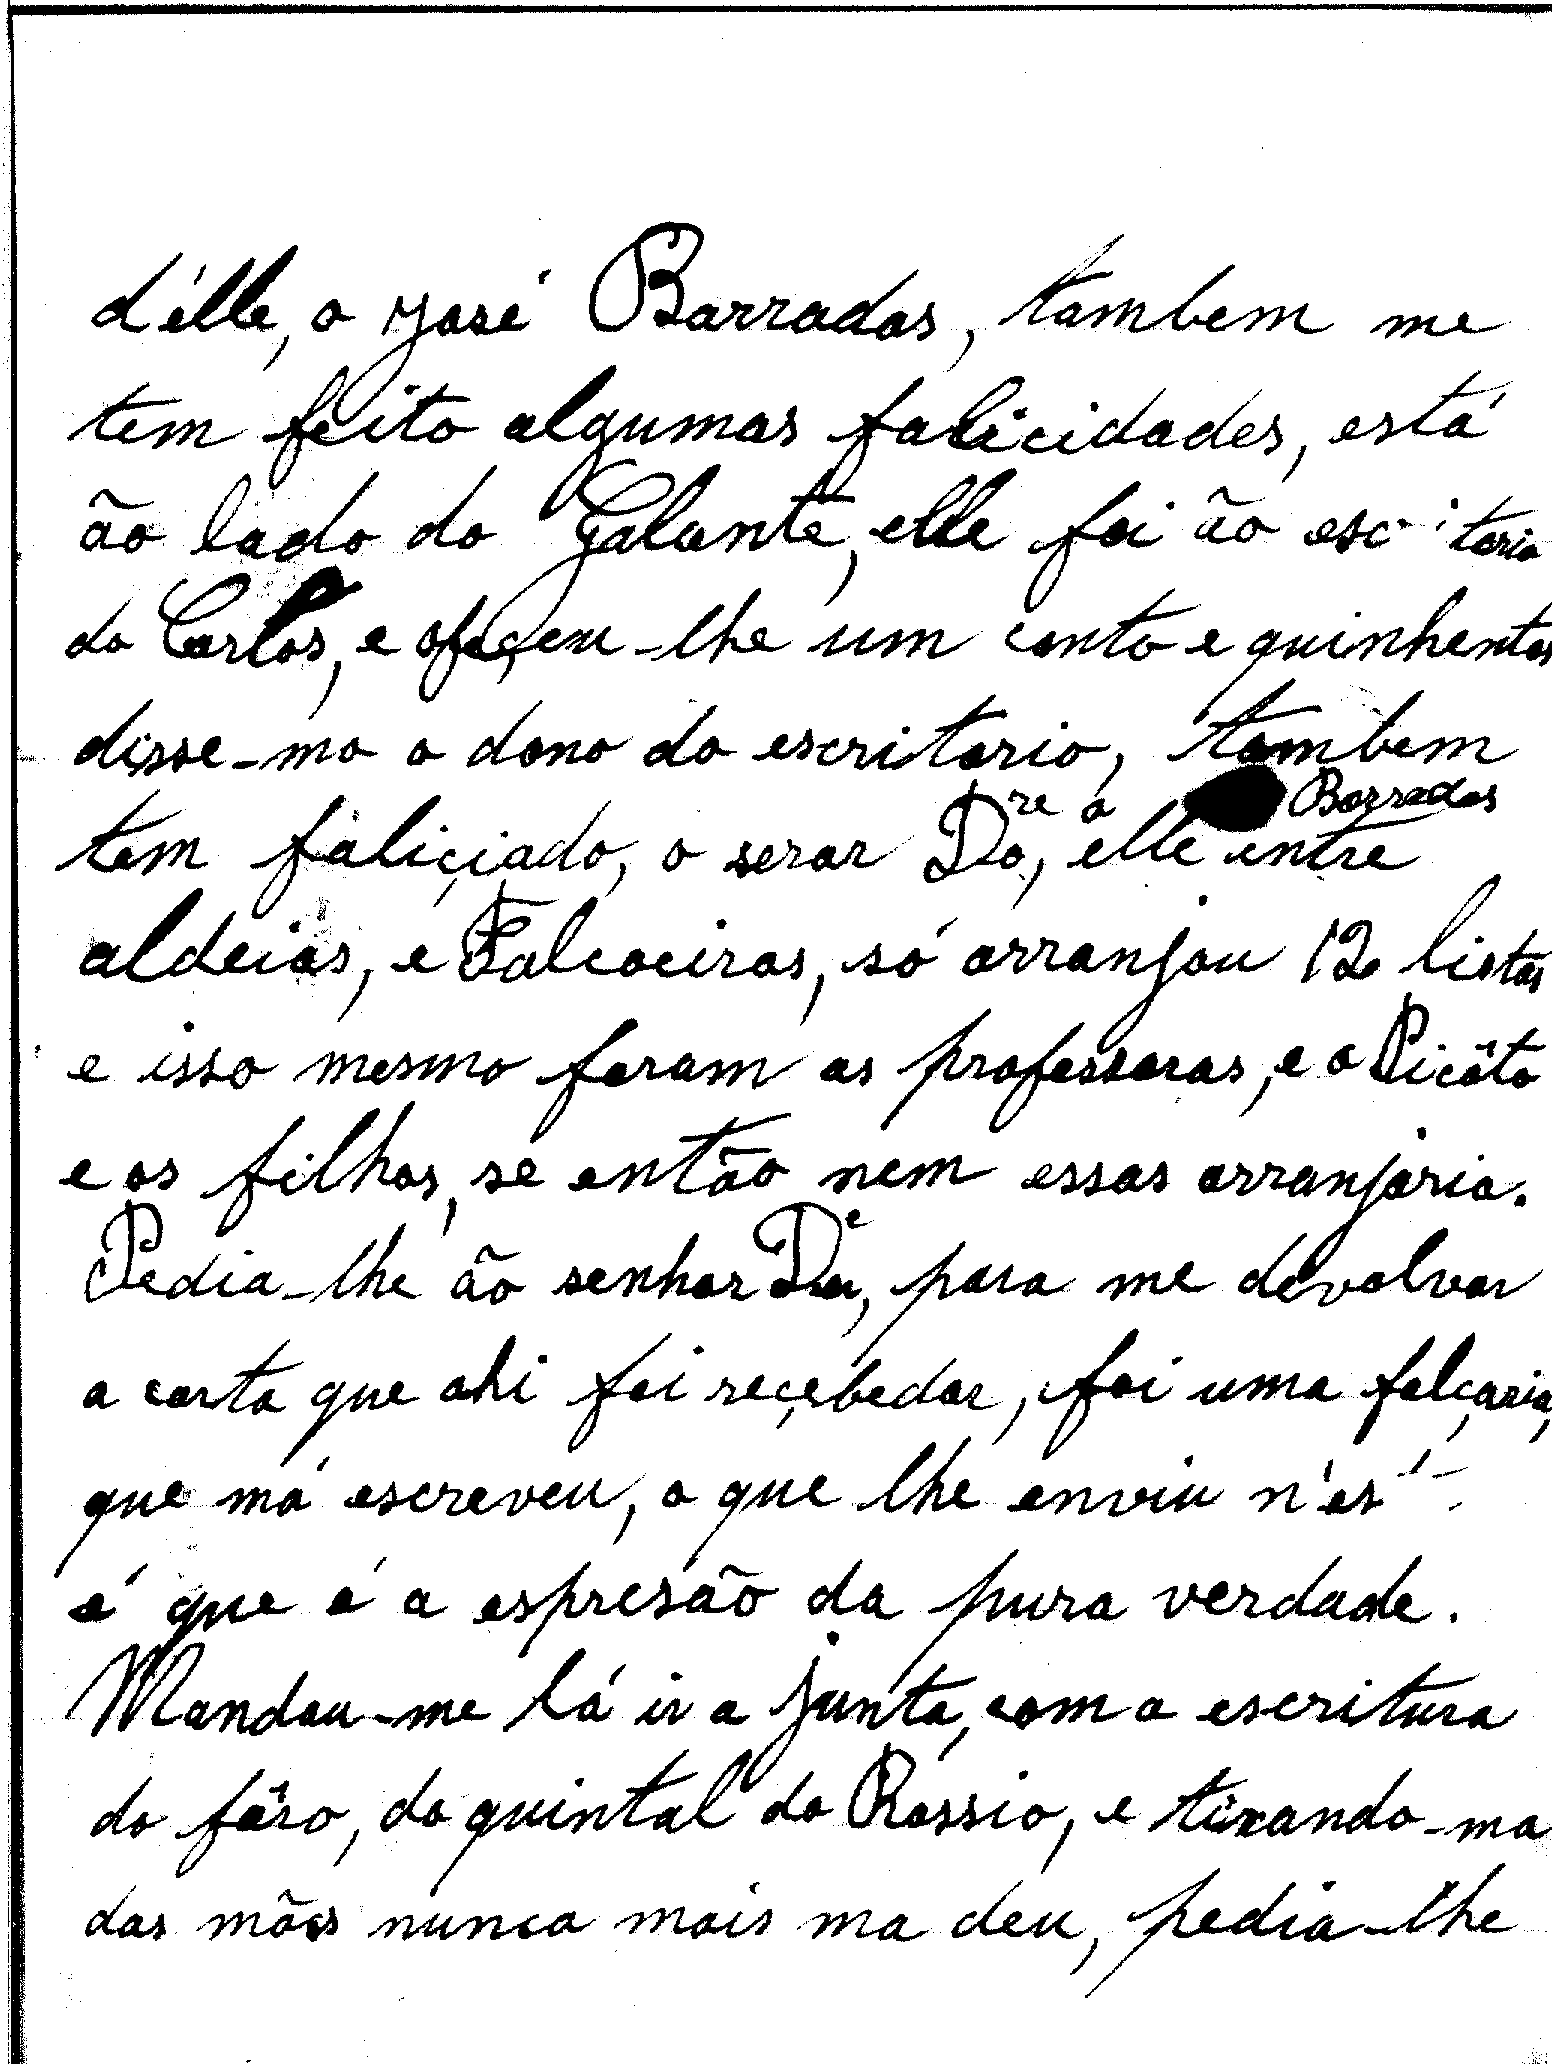 d'élle, o José Barradas, tambem me
tem feito algumas falicidades, está
ão lado do Galante, elle foi ão esc itorio
do Carlos, e ofreçeu-lhe um conto e quinhentos
disse-mo o dono do escritorio, tambem
tem faliçiado, o seror Do,re o Barradas elle entre
aldeias, e Falcoeiras, só arranjou 12 listas
e isso mesmo foram as professoras, e o Picôto
e os filhos, se então nem essas arranjaria.
Pedia-lhe ão senhor Dre, para me devolver
a carta que ahi foi reçebedor, foi uma falçaria,
que má escreveu, o que lhe enviu n'es
é que é a espresão da pura verdade.
Mandou-me lá ir a junta, com a escritura
do fôro, do quintal do Rossio, e tirando-ma
das mãos nunca mais ma deu, pedia-lhe